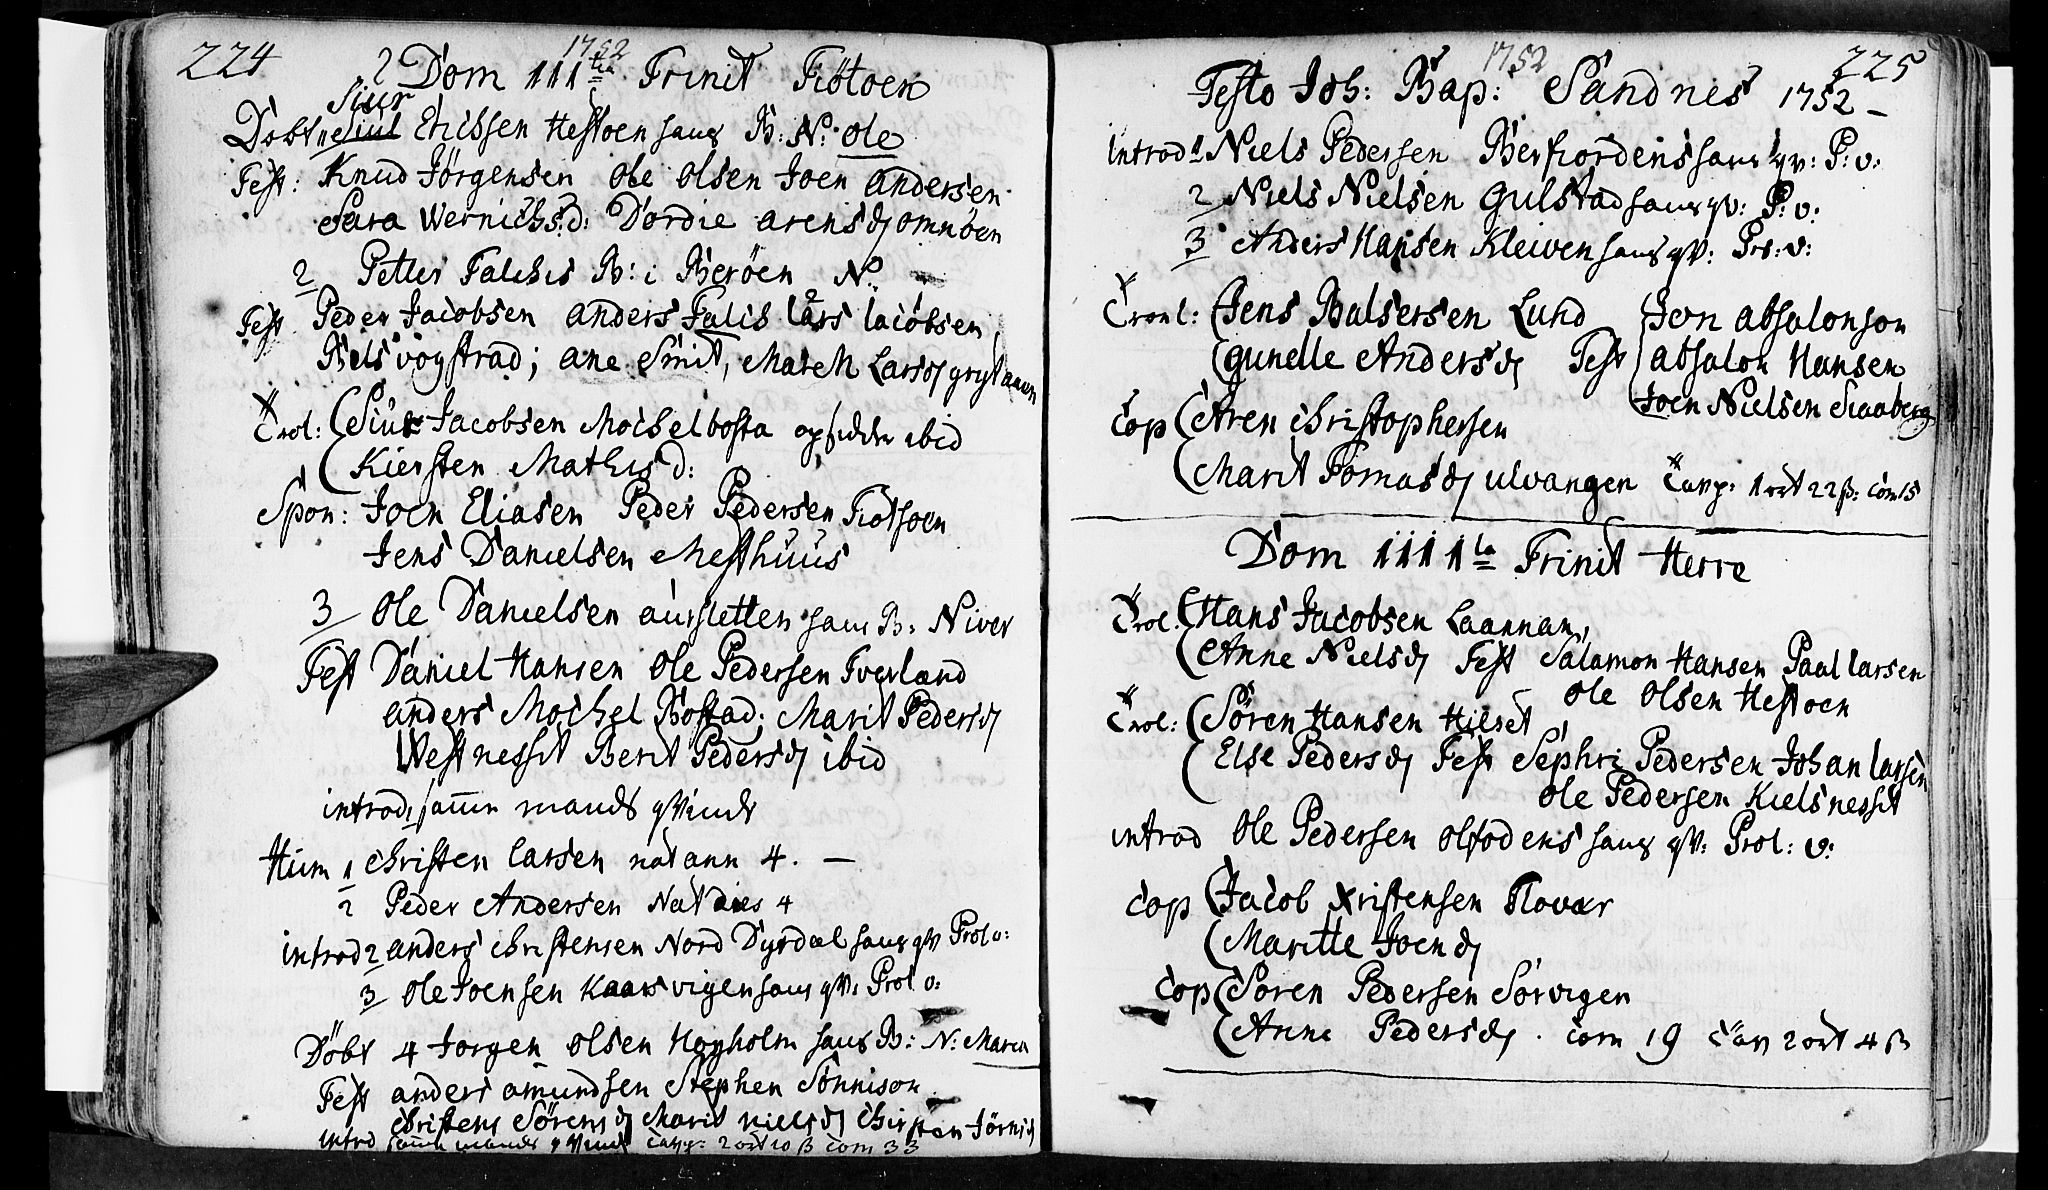 224
1752
2 Dom 111tia Trinit Tiötoen
Siur
Döbt Siul Erichsen Hestoen hans B: N: Ole
Test: Knud Jörgensen Ole Olsen Joen Andersen
Sara Wernichs d: Dordie arens d omnöen
2 Petter Falchis B: i Beröen N:
Test Peder Jacobsen anders Falis lars Iacobsen
Niels vogstrad; ane Smit, Maren Lars d
Trol: (Siur Jacobsen Mochelbosta opsidder ibid
(Kiersten Mathis d:
Spon: Joen Eliasen Peder Pedersen Tiotsoen
Jens Danielsen Mesthuus
3 Ole Danielsen aursletten hans B: Niver
Test Daniel Hansen Ole Pedersen Tverland
anders Mochel Bostad; Marit Peders d
Westnessit Berit Peders d ibid
introd: samme mands qvinde
Hum 1 Christen larsen nat ann 4. —
2 Peder Andersen Nat dies 4
introd 2 anders Christensen Nord Dyrdal hans qv Prol v:
3 Ole Joensen Kaarsvigen hans qv: Prol v:
Döbt 4 Jorgen Olsen Hogholm hans B: N: Maren
Test anders amundsen Stephen Sönnison
Christens Sörens d Marit niels d
introd samme mands qvinde Tavp: 2 ort 10 ß com 33
225
1752
Festo Joh: Bap: Sandnis 1752 —
introd 1 Niels Pedersen Berfiordens hans qv: P: v:
2 Niels Nielsen Gulstad hans qv: P: v:
3 Anders Hansen Kleiven hans qv: Prs: v:
Tronl: (Jens Balsersen Lund (Jon absalonson
(gunelle Anders d Test (absalon Hansen
(Joen Nielsen Siaaberg
Cop (Aren Christophersen
(Marit Tomas d ulvangen Tavp: 1 ort 22 ß: com 15
Dom 1111ta Trinit Herre
Trol: (Hans Jacobsen Laannan,
(Anne Niels d Test Salamon Hansen Paal larsen
Ole Olsen Hestoen
Trol: (Sören Hansen Hilset
(Else Peders d Test Sephri Pedersen Johan larsen
Ole Pedersen Kielsnessit
introd Ole Pedersen olfodens hans qv: Prol: v:
Cop (Jacob Xristensen Flovær
(Maritte Joen d
Cop (Sören Pedersen Sörvigen
(Anne Peders d . com 19 Tavp 2 ort 4 ß